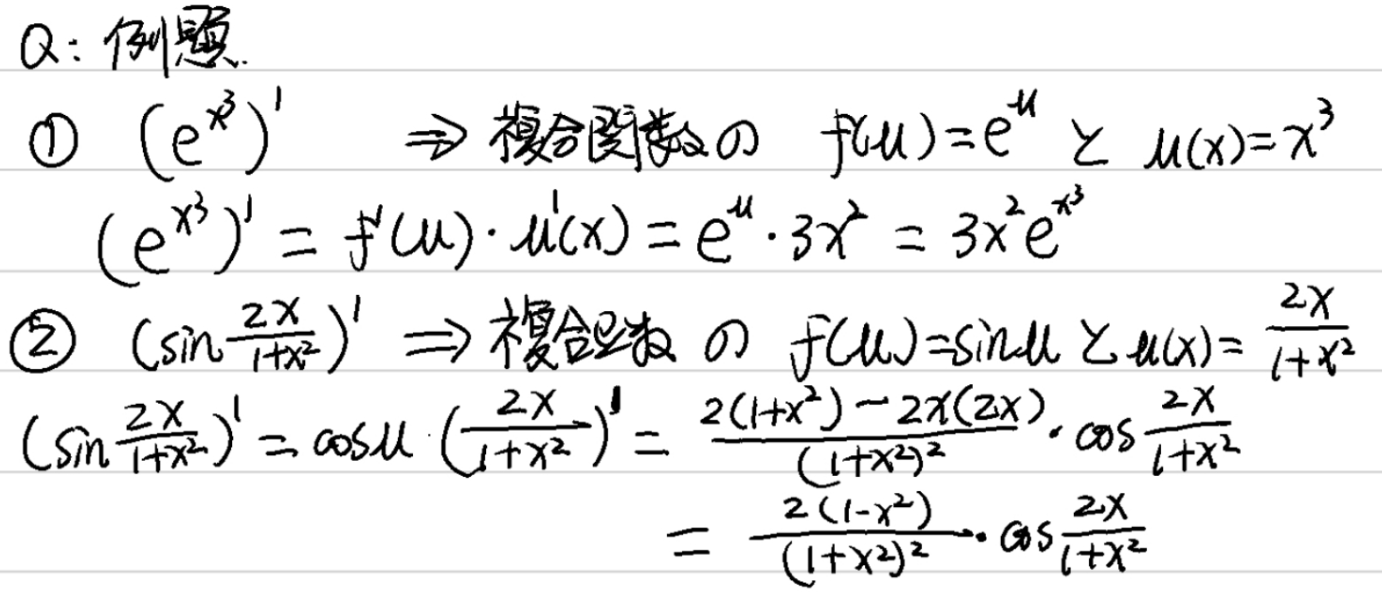 Q: 例題.
① (e^{x^3})' ⇒ 複合関数の f(u)=e^u と u(x)=x^3
(e^{x^3})' = f'(u)·u'(x) = e^u·3x^2 = 3x^2e^{x^3}
② (sin\frac{2x}{1+x^2})' ⇒ 複合関数の f(u)=sinu と u(x)=\frac{2x}{1+x^2}
(sin\frac{2x}{1+x^2})' = cosu·(\frac{2x}{1+x^2})' = \frac{2(1+x^2)-2x(2x)}{(1+x^2)^2}·cos\frac{2x}{1+x^2}
= \frac{2(1-x^2)}{(1+x^2)^2}·cos\frac{2x}{1+x^2}